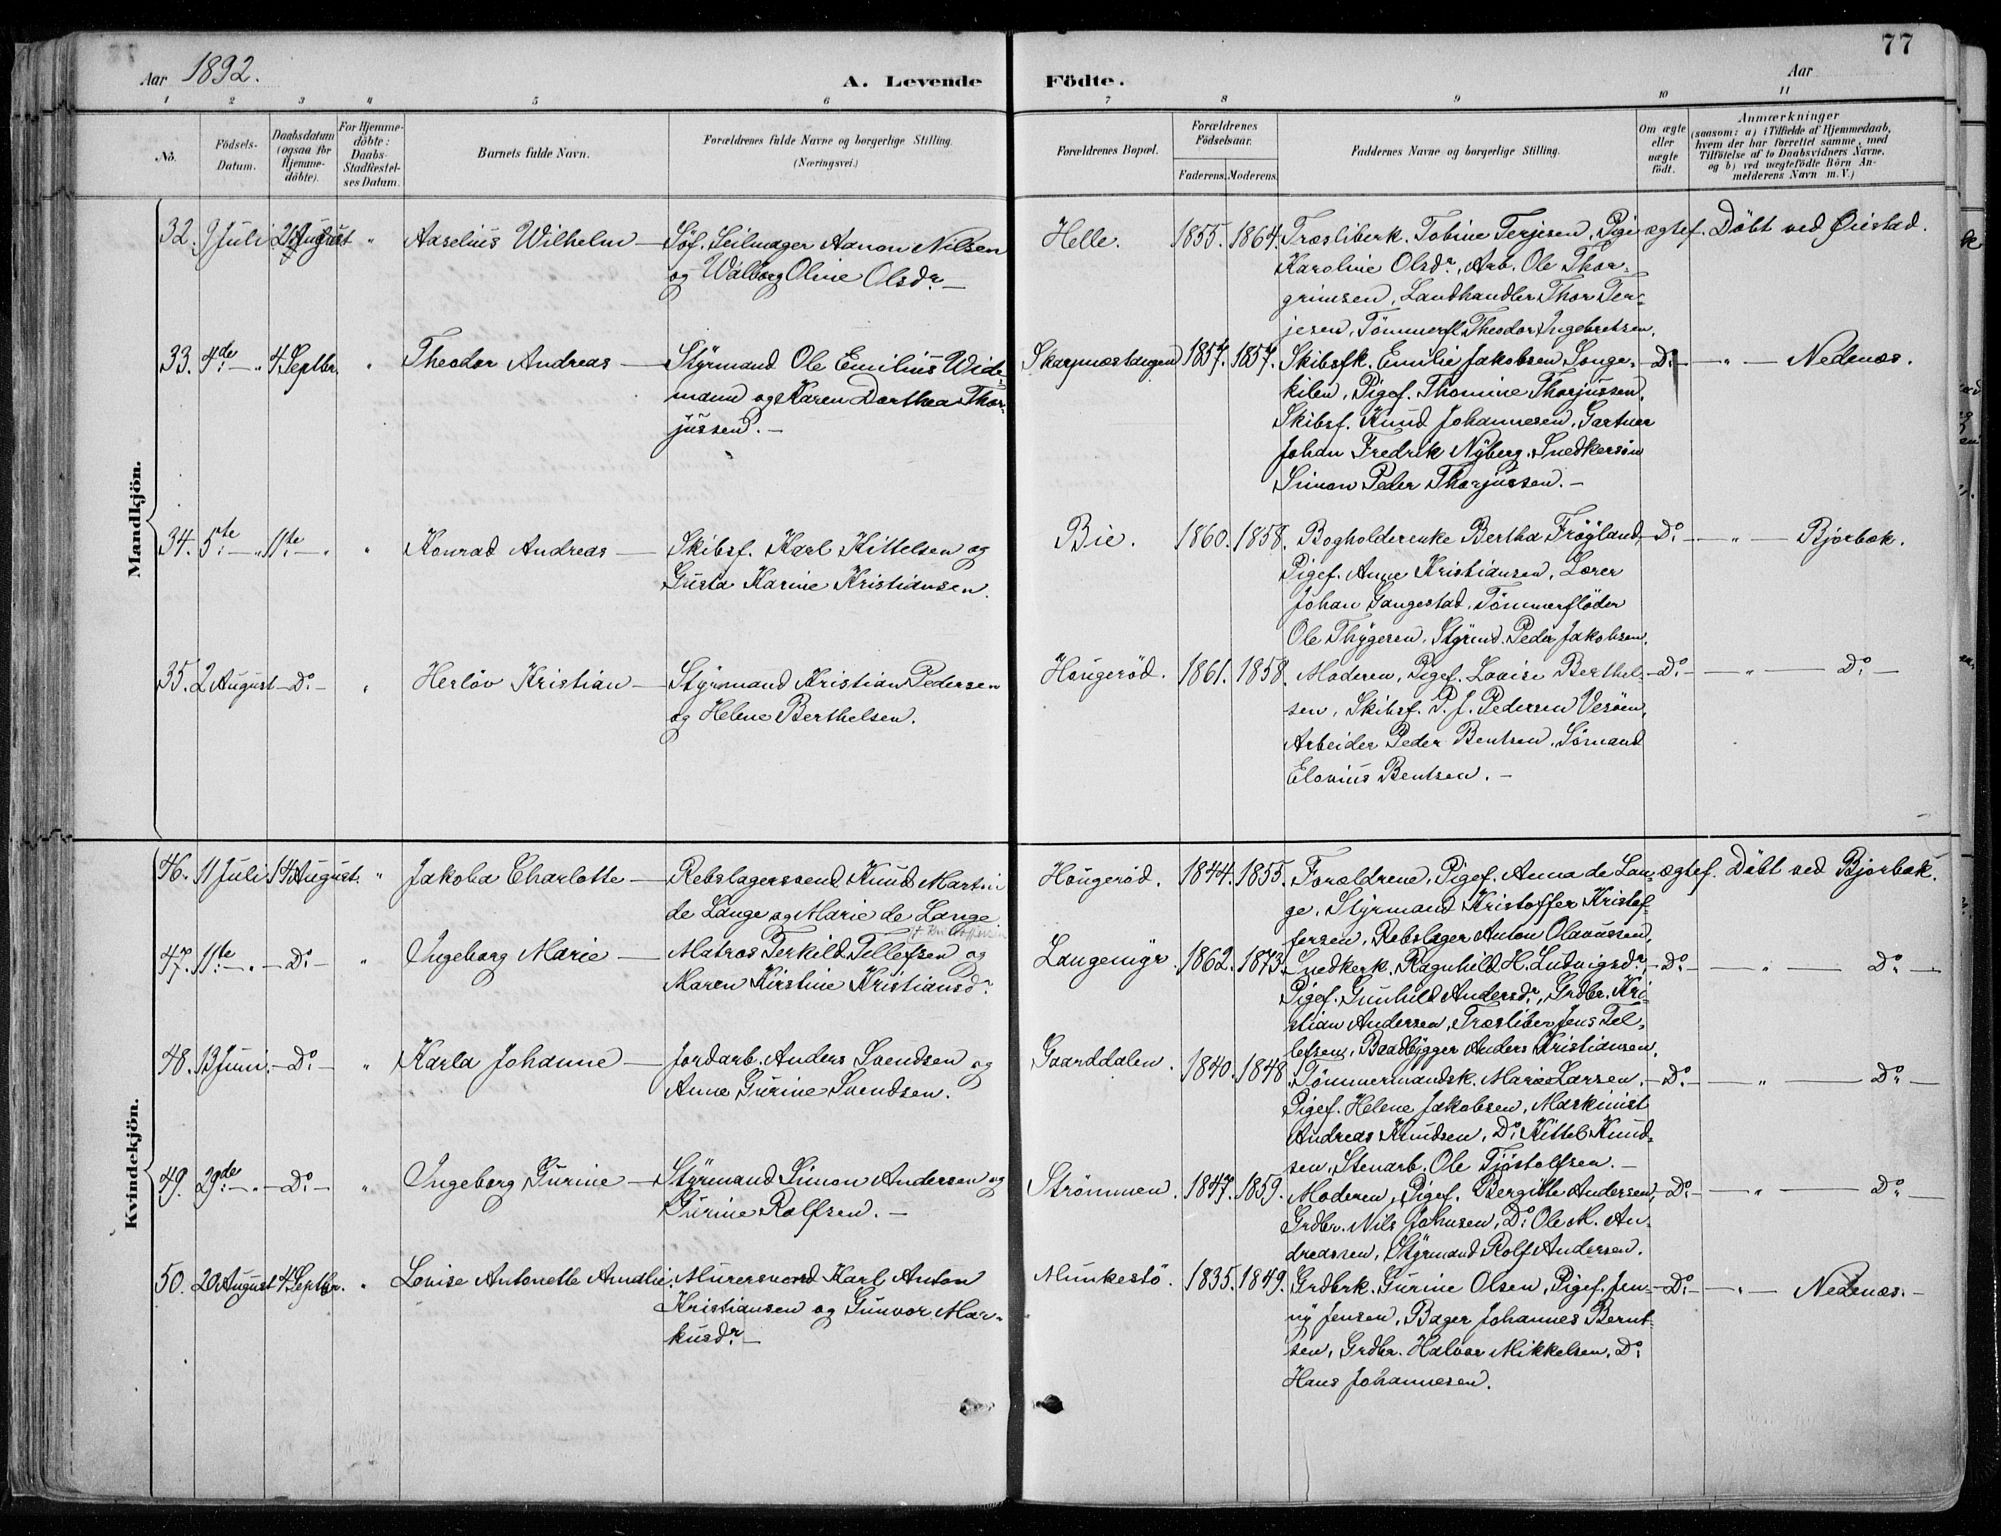 77
Aar 1892.
A. Levende Födte.
Aar
1 2 3 4 5 6 7 8 9 10 11
No.
Födsels-Datum.
Daabsdatum (ogsaa for Hjemme-döbte).
For Hjemme-döbte: Daabs-Stadfæstel-ses Datum.
Barnets fulde Navn.
Forældrenes fulde Navne og borgerlige Stilling. (Næringsvei.)
Forældrenes Bopæl.
Forældrenes Födselsaar.
Faderens. Moderens.
Faddernes Navne og borgerlige Stilling.
Om ægte eller uægte födt.
Anmærkninger
(saasom: a) i Tilfælde af Hjemmedaab, hvem der har forrettet samme, med Tilföielse af to Daabsvidners Navne, og b) ved uægtefödte Börn An-melderens Navn m. V.)
Mandkjön.
32. 9 Juli 21 August " Aaselius Wilhelm — Söf. Seilmager Aanon Nilsen
og Walborg Oline Olsdr. —
Helle. 1855. 1864. Træsliberk. Tobine Terjesen, Pige
Karoline Olsdr., Arb. Ole Thor-
grimsen, Landhandler Thor Ter-
jesen, Tömmerfl. Theodor Ingebretsen.
ægtef. Döbt ved Öiestad.
33. 4de — " 4 Septbr. " Theodor Andreas — Styrmand Ole Emilius Wide-
mann og Karen Dorthea Thor-
jussen. —
Skarpnæstangen 1857. 1857. Skibsfk. Emilie Jakobsen, Songe-
kilen, Pigef. Thomine Thorjussen,
Skibsf. Knud Johannesen, Gartner
Johan Fredrik Nyberg, Snedkersön
Simon Peder Thorjussen. —
Do. — " — Nedenæs.
34. 5te — " 11te — " " Konrad Andreas — Skibsf. Karl Kittelsen og
Gusta Karine Kristiansen.
Bie. 1860. 1858. Bogholderenke Bertha Frögland,
Pigef. Anne Kristiansen, Lærer
Johan Langestad, Tömmerflöder
Ole Thygesen, Styrmd. Peder Jakobsen.
Do. — " — Bjorbæk.
35. 2 August — Do. — " Herlöv Kristian — Styrmand Kristian Pedersen
og Helene Berthelsen.
Haugeröd. 1861. 1858. Moderen, Pigef. Lovise Berthel-
sen, Skibsf. P. J. Pedersen Vesöen,
Arbeider Peder Bentsen, Sömand
Elovius Bentsen. —
Do. — " — Do. —
Kvindekjön.
46. 11 Juli 14 August. " Jakoba Charlotte — Rebslagersvend Knud Martin
de Lange og Marie de Lange
Haugeröd. 1844. 1855. Forældrene, Pigef. Anna de Lan-
ge, Styrmand Kristoffer Kristof-
fersen, Rebslager Anton Olavussen,
ægtef. Döbt ved Bjorbæk.
47. 11te — " — Do. — " Ingeborg Marie — Matros Terkild Tellefsen og
Maren Kirstine Kristiansdr.
Langemyr 1862. 1873. Snedkerk. Ragnhild H. Ludvigsdr.,
Pigef. Gunhild Andersdr., Grdbr. Kri-
stian Andersen, Træsliber Jens Tel-
lefsen, Baadbygger Anders Kristiansen.
Do. — " — Do. —
48. 13 Juni. — Do. — " Karla Johanne — Jordarb. Anders Svendsen og
Anne Gurine Svendsen.
Gaarddalen. 1840. 1848. Tömmermandsk. Marie Larsen,
Pigef. Helene Jakobsen, Maskinist
Andreas Knudsen, Do. Kittel Knud-
sen, Stenarb. Ole Tjöstolfsen. —
Do. — " — Do. —
49. 29de — " — Do. — " Ingeborg Gurine — Styrmand Simon Andersen og
Gurine Rolfsen. —
Strömmen. 1847. 1859. Moderen, Pigef. Bergitte Andersen,
Grdbr. Nils Johnsen, Do. Ole M. An-
dreassen, Styrmand Rolf Andersen.
Do. — " — Do. —
50. 20 August 4 Septbr. " Lovise Antonette Amalie. Murersvend Karl Anton
Kristiansen og Gunvor Mar-
kusdr. —
Munkestö. 1835. 1849. Grdbrk. Gurine Olsen, Pigef. Jen-
ny Jensen, Bager Johannes Bernt-
sen, Grdbr. Halvor Mikkelsen, Do.
Hans Johannesen.
Do. — " — Nedenæs. —